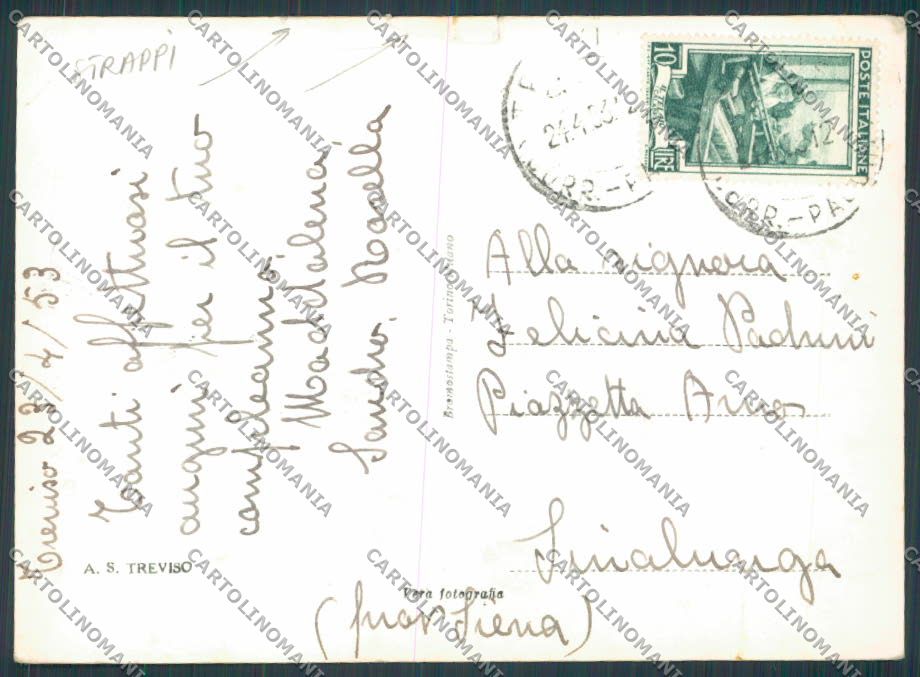 STRAPPI
Treviso 23/4/53
Tanti affettuosi
auguri per il tuo
compleanno
Maddalena
Sandro. Rosella
A. S. TREVISO
Bromostampa - Torino-Milano
Vera fotografia
POSTE ITALIANE
10
LIRE
24.4.53
CORR.-PA
CORR.-PA
12
Alla signora
Felicina Padrini
Piazzetta Arno
Sinalunga
(prov Siena)
CARTOLINOMANIA